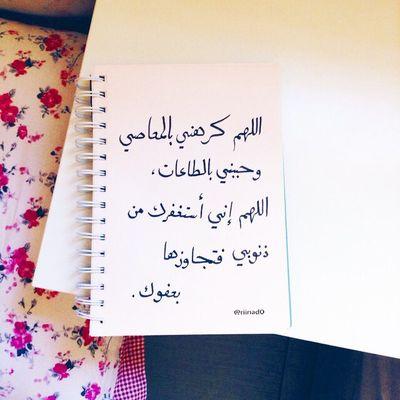 اللهم كرهني بالمعاصي
وحببني بالطاعات،
اللهم إني أستغفرك من
ذنوبي فتجاوزها
بعفوك.
@riinad0